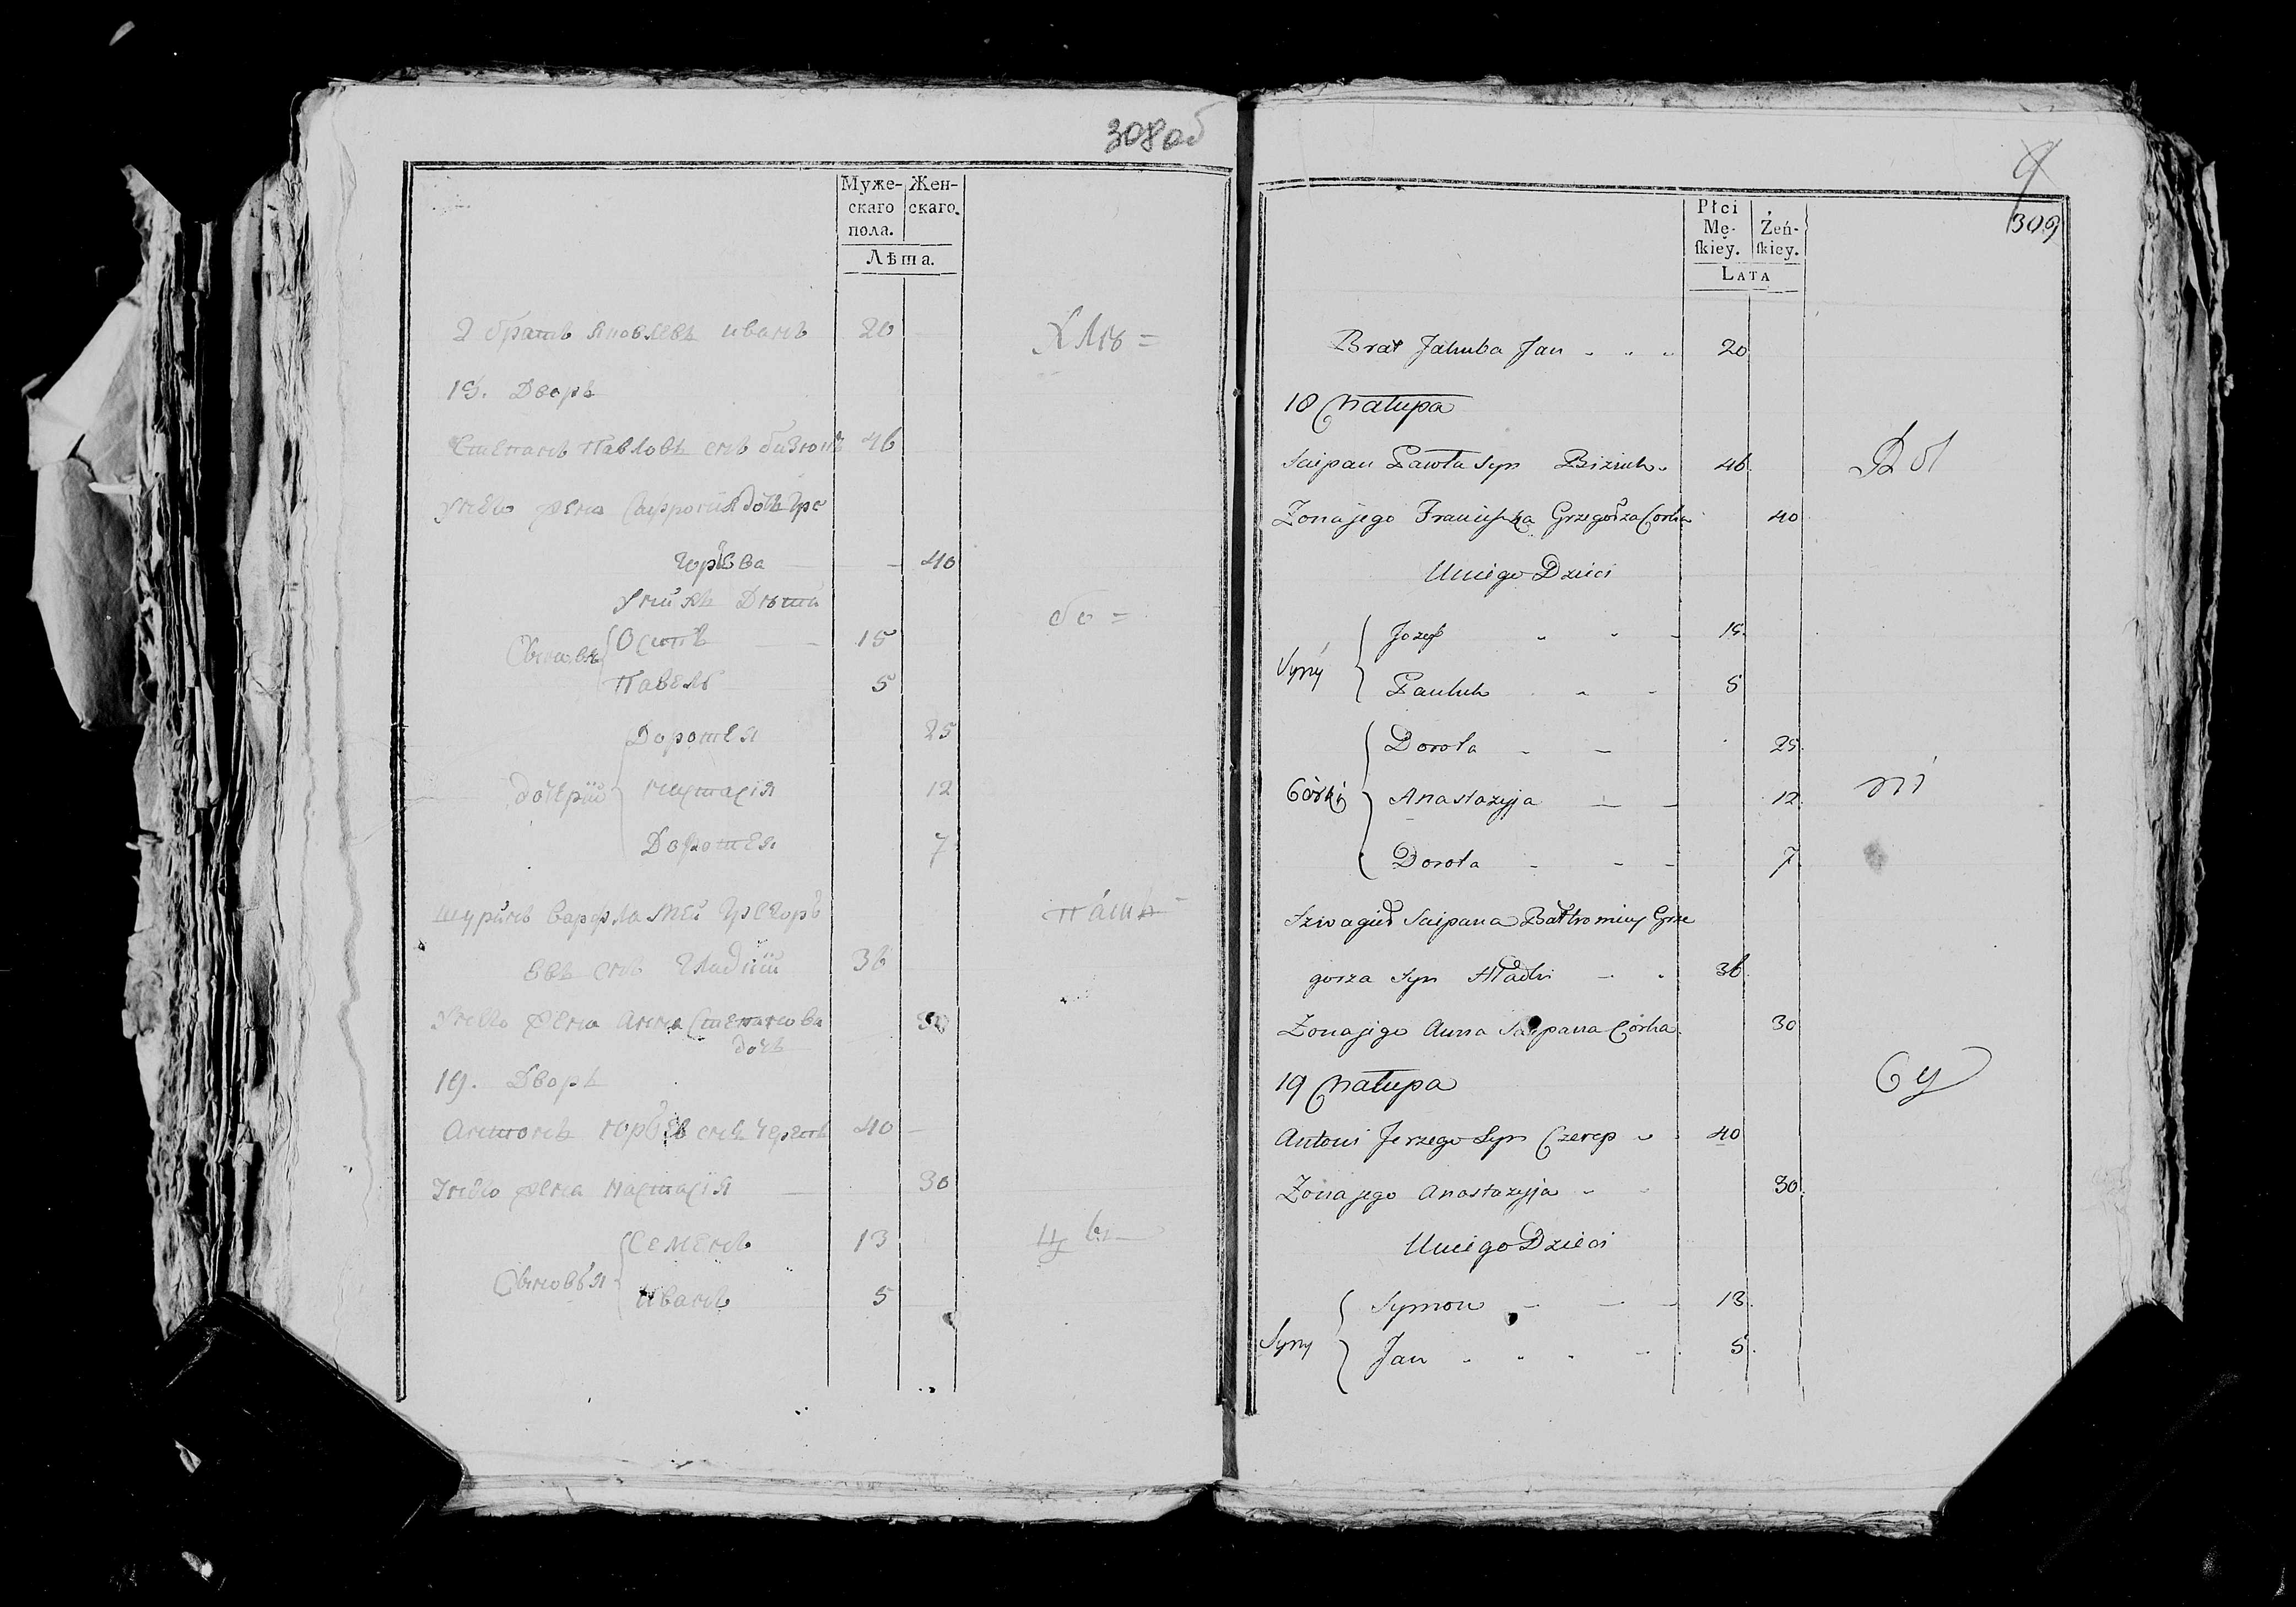 308 об
Муже-
скаго
пола.
Жен-
скаго.
Лѣта.
2 братъ Яковлевъ иванъ 20
18. Дворъ
Степанъ Павловъ снъ бизюкъ 46
Унево жена доче Гре
горева 40
Унихъ Дѣти
Сыновя Осипъ 15
Павелъ 5
Доротея 25
дочери настасія 12
Доротея 7
шуринъ варфламей Грегорь
евъ снъ 36
Унево жена анна степанова 30
дочъ
19. Дворъ
Антонъ юрьевъ снъ черепъ 40
Унево жена настасія 30
Семенъ 13
Сыновья иванъ 5
9
309
Płci
Mę-
ſkiey.
Żeń-
ſkiey.
LATA
Brat Jakuba Jan 20
18 Chałupa
Sciepan Pawła Syn Biziuk 46
Zona jego Franciszka Grzegorza Corka 40
U niego Dzieci
Syny Jozef 15
Pauluk 5
Dorota 25
Córki Anastazyja 12
Dorota 7
Szwagier Sciepana Bałtromiey Grze
gorza Syn Hładki 36
Zona jego Anna Sciepana Córka 30
19 Chałupa
Antoni Jerzego Syn Czerep 40
Zona jego Anastazyja 30
U niego Dzieci
Symon 13
Syny Jan 5